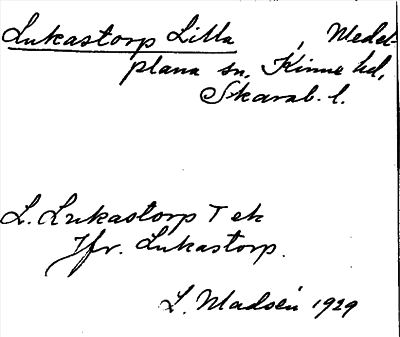 Lukastorp Lilla, Medel-
plana sn, Kinne hd,
Skarab. l.
L. Lukastorp T ek
Jfr. Lukastorp.
L. Madsén 1929